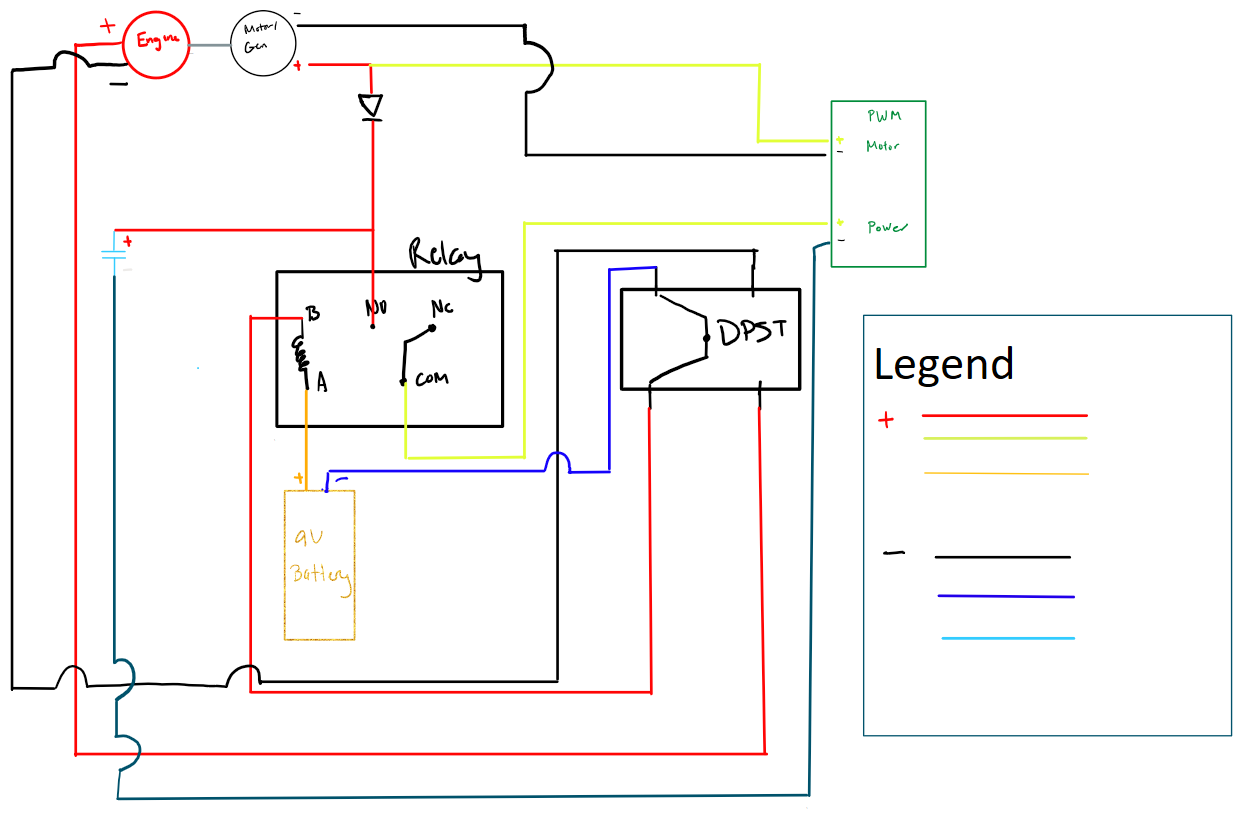 +
-
Engine
Motor/
Gen
-
+
PWM
+
Motor
-
+
Power
-
+
-
Relay
B
NO
NC
A
COM
DPST
+
-
9V
Battery
Legend
+
-